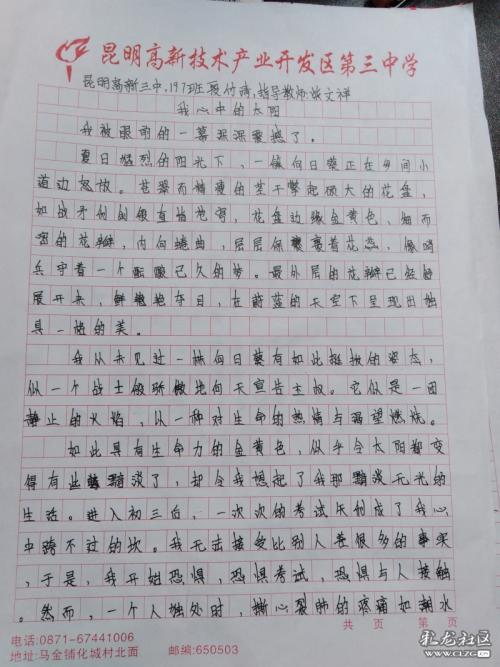 昆明高新技术产业开发区第三中学
昆明高新三中,197班 付 指导教师 文祥
我心中的太阳
我被眼前的一幕深深震撼了。
夏日猛烈的阳光下,一株向日葵正在乡间小
道边怒放。苍翠而精瘦的茎干擎起硕大的花盘,
如战矛似剑般直指苍穹,花盘边缘金黄色、细而
密的花瓣,内向蜷曲,层层保裹着花蕊,像哨
兵守着一个酝酿已久的梦。最外层的花瓣已经舒
展开来,鲜艳夺目,在蔚蓝的天空下呈现出独
具一格的美。
我从未见过一株向日葵有如此挺拔的姿态,
似一个战士般骄傲地向天宣告主权。它似是一团
静止的火焰,以一种对生命的热情与渴望燃烧。
如此具有生命力的金黄色,似乎令太阳都变
得有些黯淡了,却令我想起了我那黯淡无光的
生活。进入初三后,一次次的考试失利成了我心
中跨不过的坎。我无法接受比别人差很多的事实
,于是,我开始恐惧,恐惧考试,恐惧与人接触
。然而,一个人独处时,撕心裂肺的疼痛如潮水
共 页 第 页
电话:0871-67441006
地址:马金铺化城村北面 邮编:650503
乳龙社区